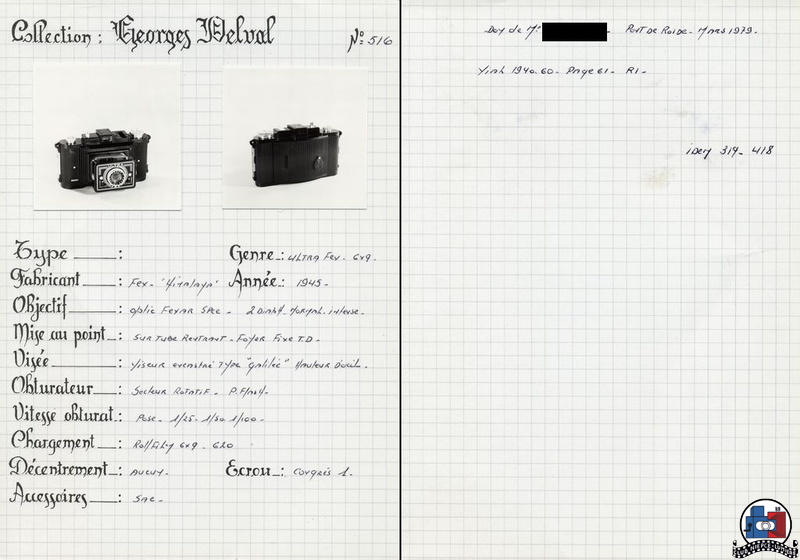 Collection : Georges Delval Nº 516
Type : Genre : ULTRA Fex. 6x9.
Fabricant : Fex- "Himalaya" Année : 1945-
Objectif : optic Fexar Spec - 2 Diaph. Normal. intense.
Mise au point : Sur Tube Rentrant - Foyer Fixe T.D -
Visée : Viseur encastré Type "Galilée" Hauteur D'oeil.
Obturateur : Secteur Rotatif - P.Flash.
Vitesse obturat : Pose - 1/25- 1/50 1/100-
Chargement : RollFilm 6x9 - 620
Décentrement : Aucun. Ecrou : Congrès 1.
Accessoires : Sac -
Don de Mr PONT DE ROIDE- Mars 1979.
1940.60- Page 61- R1-
idem 319- 418